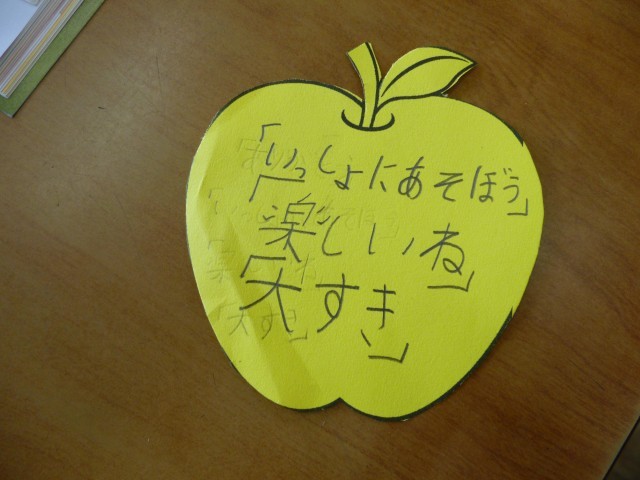 「いっしょにあそぼう」
「楽しいね」
「大すき」